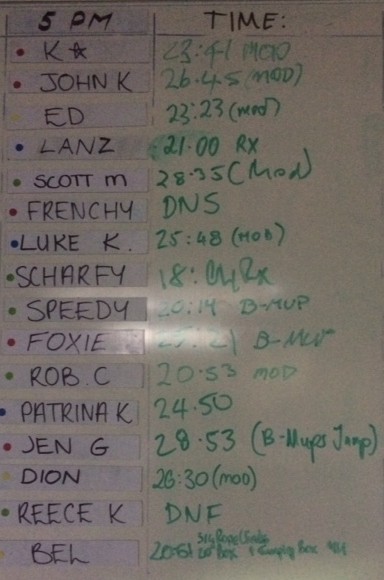 5 PM TIME:
K☆ 23:41 MOD
JOHN K 26.45 (MOD)
ED 23:23 (mod)
LANZ 21.00 RX
SCOTT m 28.35 (Mod)
FRENCHY DNS
LUKE K. 25:48 (MOD)
SCHARFY 18: Rx
SPEEDY 20:14 B-MUP
FOXIE B-MUP
ROB.C 20.53 MOD
PATRINA K 24.50
JEN G 28.53 (B-Mups Jump)
DION 26:30 (mod)
REECE K DNF
BEL Box Box